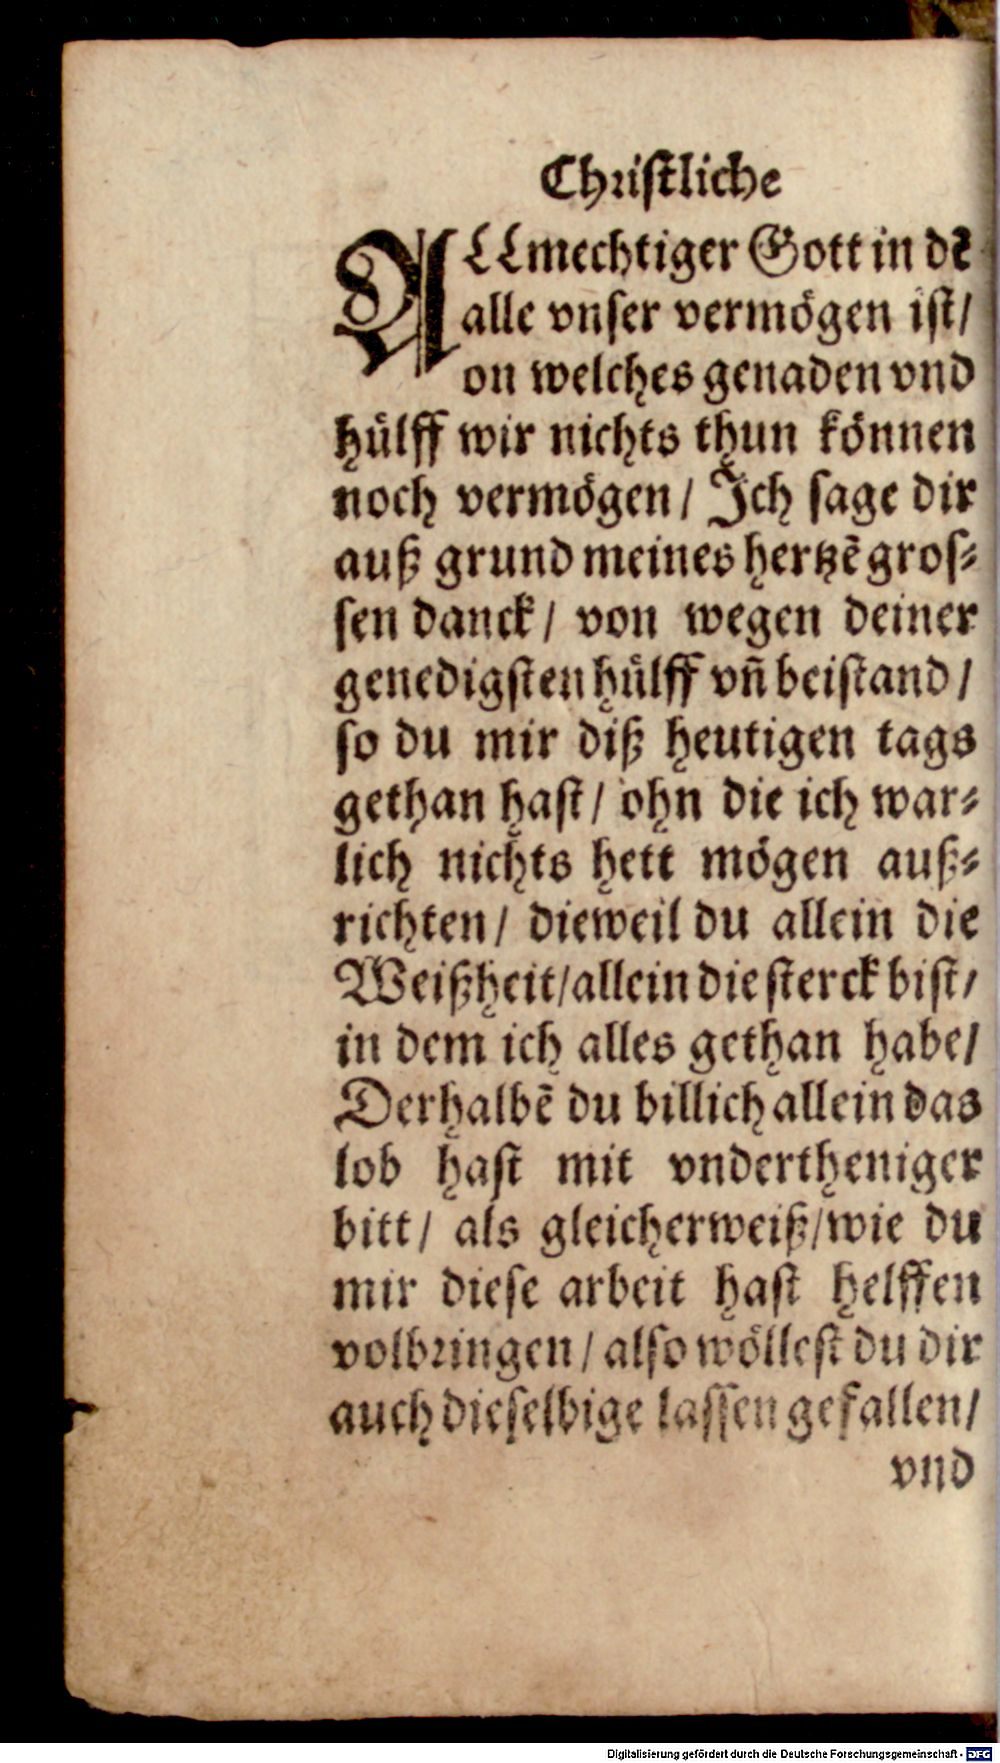 Christliche
ALLmechtiger Gott in dē
alle vnser vermögen ist/
on welches genaden vnd
hülff wir nichts thun können
noch vermögen/ Ich sage dir
auß grund meines hertzē gros-
sen danck/ von wegen deiner
genedigsten hülff vñ beistand/
so du mir diß heutigen tags
gethan hast/ ohn die ich war-
lich nichts hett mögen auß-
richten/ dieweil du allein die
Weißheit/allein die sterck bist/
in dem ich alles gethan habe/
Derhalbē du billich allein das
lob hast mit vndertheniger
bitt/ als gleicherweiß/wie du
mir diese arbeit hast helffen
volbringen/ also wöllest du dir
auch dieselbige lassen gefallen/
vnd
Digitalisierung gefördert durch die Deutsche Forschungsgemeinschaft - DFG